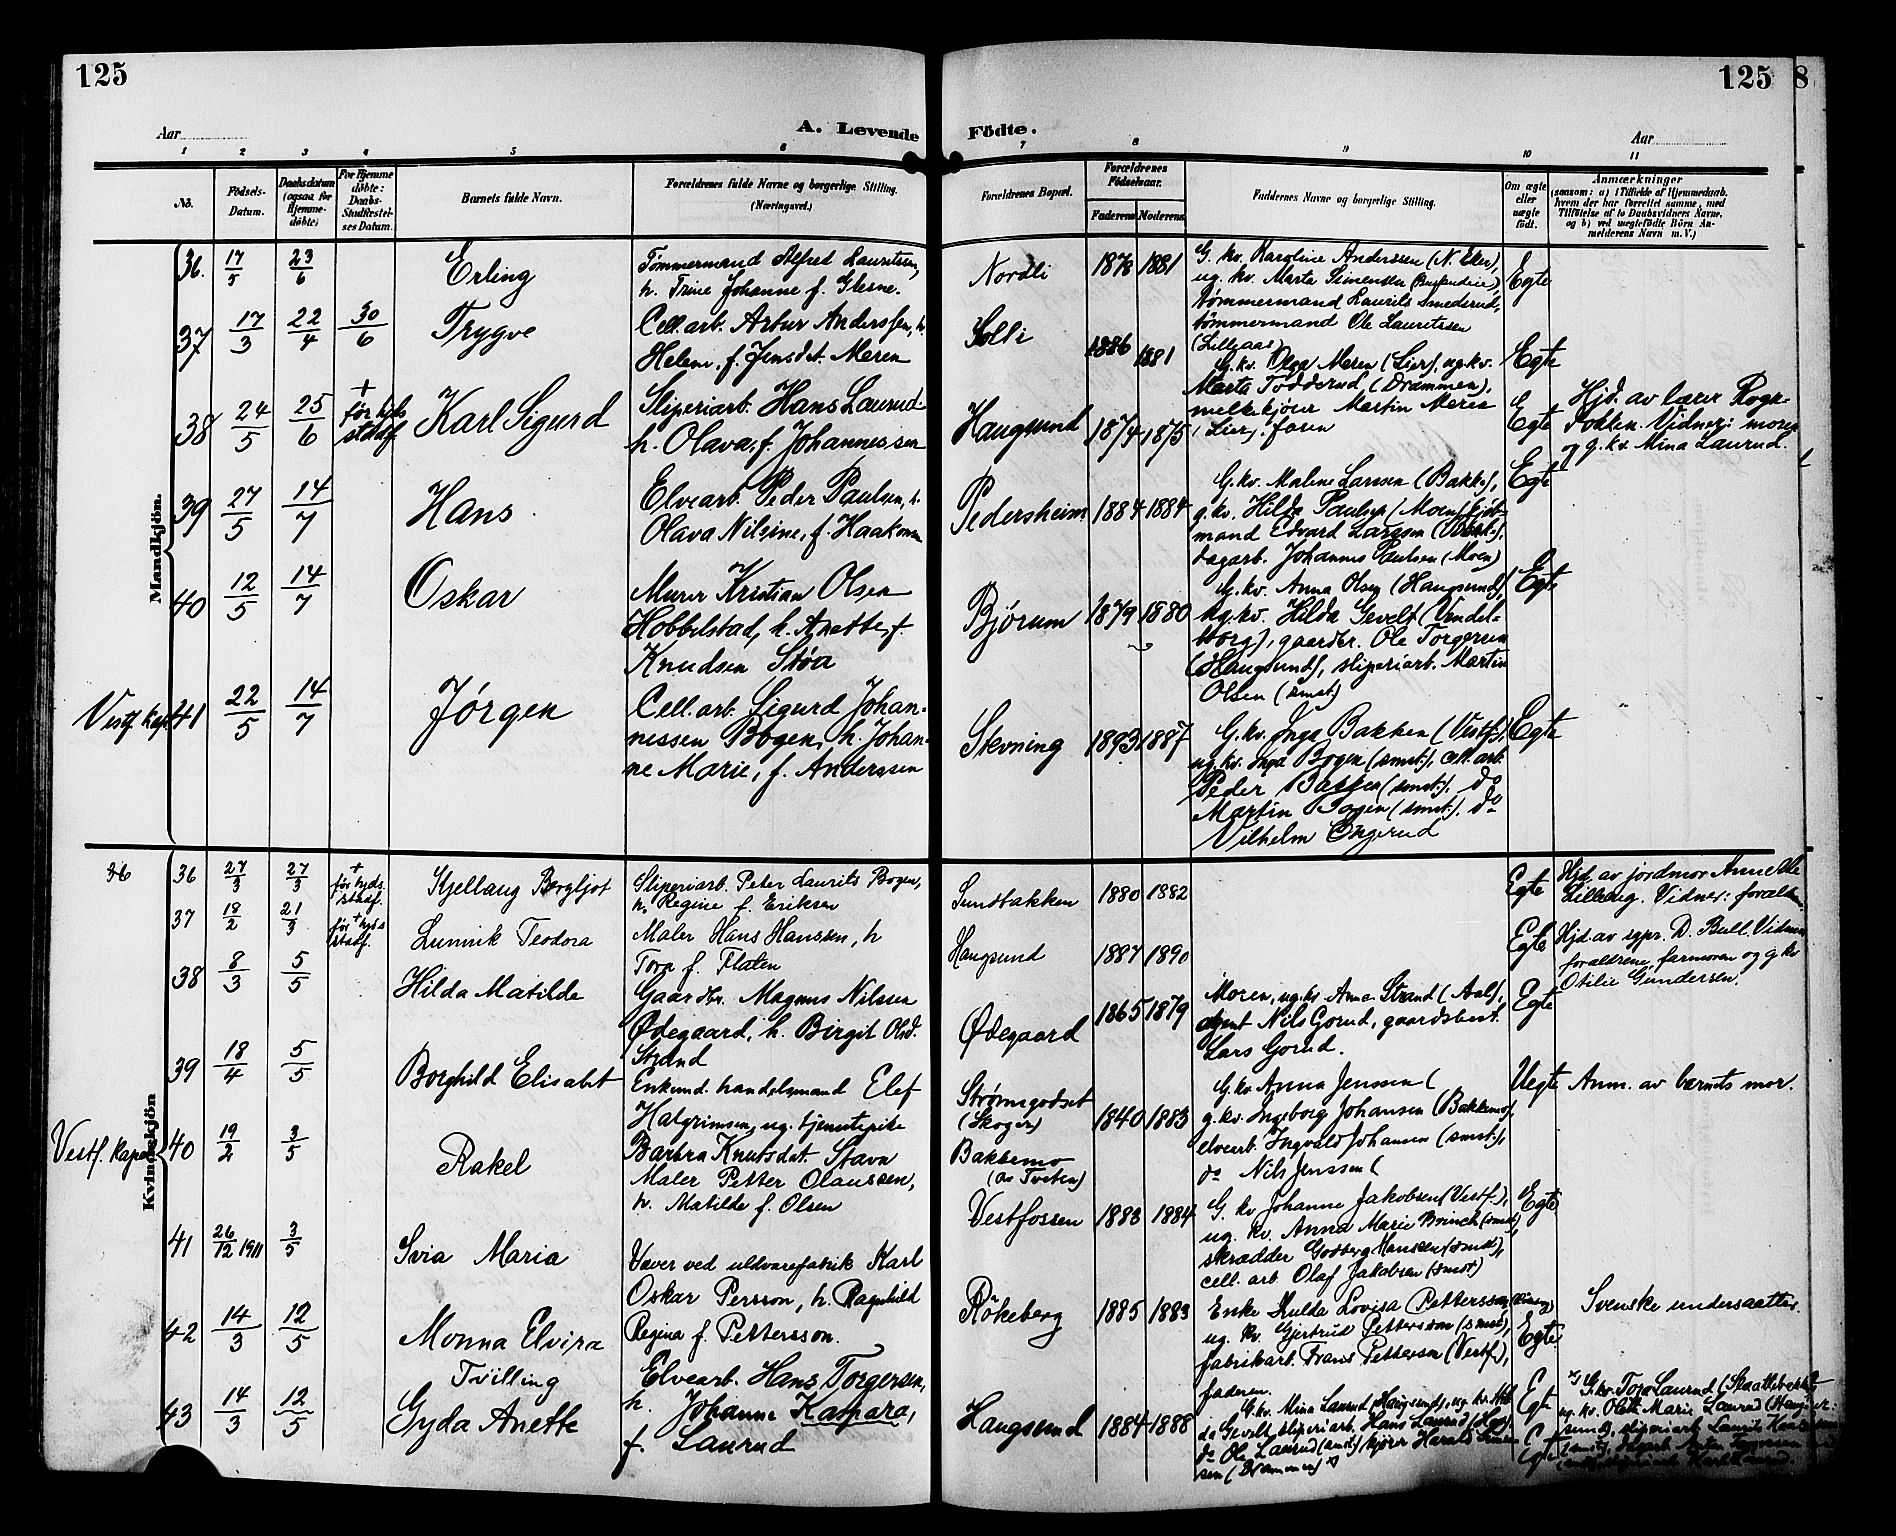 125
125
8
Aar
A. Levende Födte.
Aar
1 2 3 4 5 6 7 8 9 10 11
No.
Födsels-Datum.
Daabsdatum (ogsaa for Hjemme-döbte)
For Hjemme döbte: Daabs-Stadfæstel-ses Datum.
Barnets fulde Navn.
Forældrenes fulde Navne og borgerlige Stilling. (Næringsvei.)
Forældrenes Bopæl.
Forældrenes Födselsaar.
Faderens Moderens
Faddernes Navne og borgerlige Stilling.
Om ægte eller uægte födt.
Anmærkninger
(saasom: a) i Tilfælde af Hjemmedaab, hvem der har forrettet samme, med Tilföielse af to Daabsvidners Navne, og b) ved uægtefödte Börn An-melderens Navn m. V.)
Mandkjön.
36. 17/5 23/6 Erling
Tømmermand Alfred Lauritsen,
h. Trine Johanne f. Glesne.
Nordli 1878 1881
G. kv. Karoline Anderssen (N. Eker),
ug. kv. Marta Simensen
tømmermand Laurits Smederud,
tømmermand Ole Lauritssen
(Lillaas)
Egte
37 17/3 22/4 30/6 Trygve
Cell.arb. Artur Anderssen, h.
Helene, f. Jensdat. Meren
Solli 1886 1881
G.kv. Olga Meren (Lier), ug.kv.
Marta Todderud, (Drammen),
melkekjører Martin Meren
(Lier), faren
Egte
38 24/5 25/6 + før kyds stadf. Karl Sigurd
Sliperiarb. Hans Laurud
h. Olava, f. Johannessen
Haugsund 1874 1875
Egte
Hjd. av lærer Rogn-
Vidner: moren
og g. kv. Mina Laurud.
39 27/5 14/7 Hans
Elvearb. Peder Paulsen, h.
Olava Nilsine, f. Haakonsen
Pedersheim 1884 1884
G.kv. Malene Larsen (Bakke),
g. kv. Hilda Paulsen (Moen)
mand Edvard Larssen
dagarb. Johannes Paulsen (Moen)
Egte
40 12/5 14/7 Oskar
Murer Kristian Olsen
Hobbelstad, h. Anette, f.
Knudsen Støa
Bjørum 1879 1880
G. kv. Anna Olsen (Haugsund),
ug. kv. Hilda Gevelt (Vendel-
borg), gaardbr. Ole Torgersen
(Haugsund), sliperiarb. Martin
Olsen (smst.)
Egte
Vestf. kap. 41 22/5 14/7 Jørgen
Cell.arb. Sigurd Johan-
nessen Bogen, h. Johan-
ne Marie, f. Anderssen
Stevning 1893 1887
G.kv. Inga Bakken (Vestf.),
ug. kv. Inga Bogen (smst.), cell. arb.
Peder Bakken (smst.), do
Martin Bogen (smst.), do
Vilhelm Ongerud
Egte
Kvindekjön
36 36 27/3 27/3 + før kyds. stadf. Kjellaug Bergljot
Sliperiarb. Peter Laurits Bogen,
h. Regine f. Eriksen
Sundbakken 1880 1882
Egte
Hjd. av jordmor Annette
Lillaug. Vidner: forældrene.
37 18/2 21/3 før + kyds stadf. Luminik Teodora
Maler Hans Hanssen, h
Tora f. Flaten
Haugsund 1887 1890
Egte
Hjd. av sgpr. D. Bull. Vidner
forældrene, farmoren og g. kv
Otilie Gundersen.
38 8/3 5/5 Hilda Matilde
Gaardbr. Magnus Nilssen
Ødegaard, h. Birgit Olsd.
Strand
Ødegaard 1865 1879
Moren, ug. kv. Anne Strand (Aal),
agent Nils Gorud, gaardsbest.
Lars Gorud.
Egte
39 18/4 5/5 Borghild Elisabet
Enkemd. handelsmand Elef
Halgrimsen, ug. tjenestepike
Barbra Knutsdat. Stavn
Strømsgodset (Skoger) 1840 1883
Bakkemo (ov Tveten)
G.kv. Anna Jenssen (
g. kv. Ingeborg Johansen (Bakkemo),
elvearb. Ingvald Johansen (smst.),
do Nils Jenssen (
Uegte Anm. av barnets mor.
Vestf. kapel 40 19/2 3/5 Rakel
Maler Petter Olaussen,
h. Matilde f. Olsen
Vestfossen 1883 1884
G. kv Johanne Jakobsen (Vestf.),
ug. kv. Anna Marie Brinch (smst.)
skrædder Godberg Hanssen (smst.),
cell. arb. Olaf Jakobsen (smst)
Egte
41 26/12 1911 3/5 Svia Maria
Væver ved uldvarefabrik Karl
Oskar Persson, h. Ragnhild
Regina f. Pettersson.
Røkeberg 1885 1883
Enke Hulda Lovisa Pettersson
ug. kv Gjertrud Pettersson (smst),
fabrikarb. Frans Pettersen (Vestf.),
faderen.
Egte
Svenske undersaatter.
42 14/3 12/5 Monna Elvira
Tvilling
43 14/3 12/5 Gyda Anette
Elvearb. Hans Torgersen,
h. Johanne Kaspara,
f. Laurud
Haugsund 1884 1888
G.kv. Mina Laurud (Haugsund), ug. kv. Hil-
da Gevelt, sliperiarb. Hans Laurud
do Ole Laurud (smst), kjører Harald Simen
sen (Drammen)
Egte
Egte
G.kv. Tora Laurud
ug. kv. Olett Marie Laurud (Haug-
sund), sliperiarb. Laurits